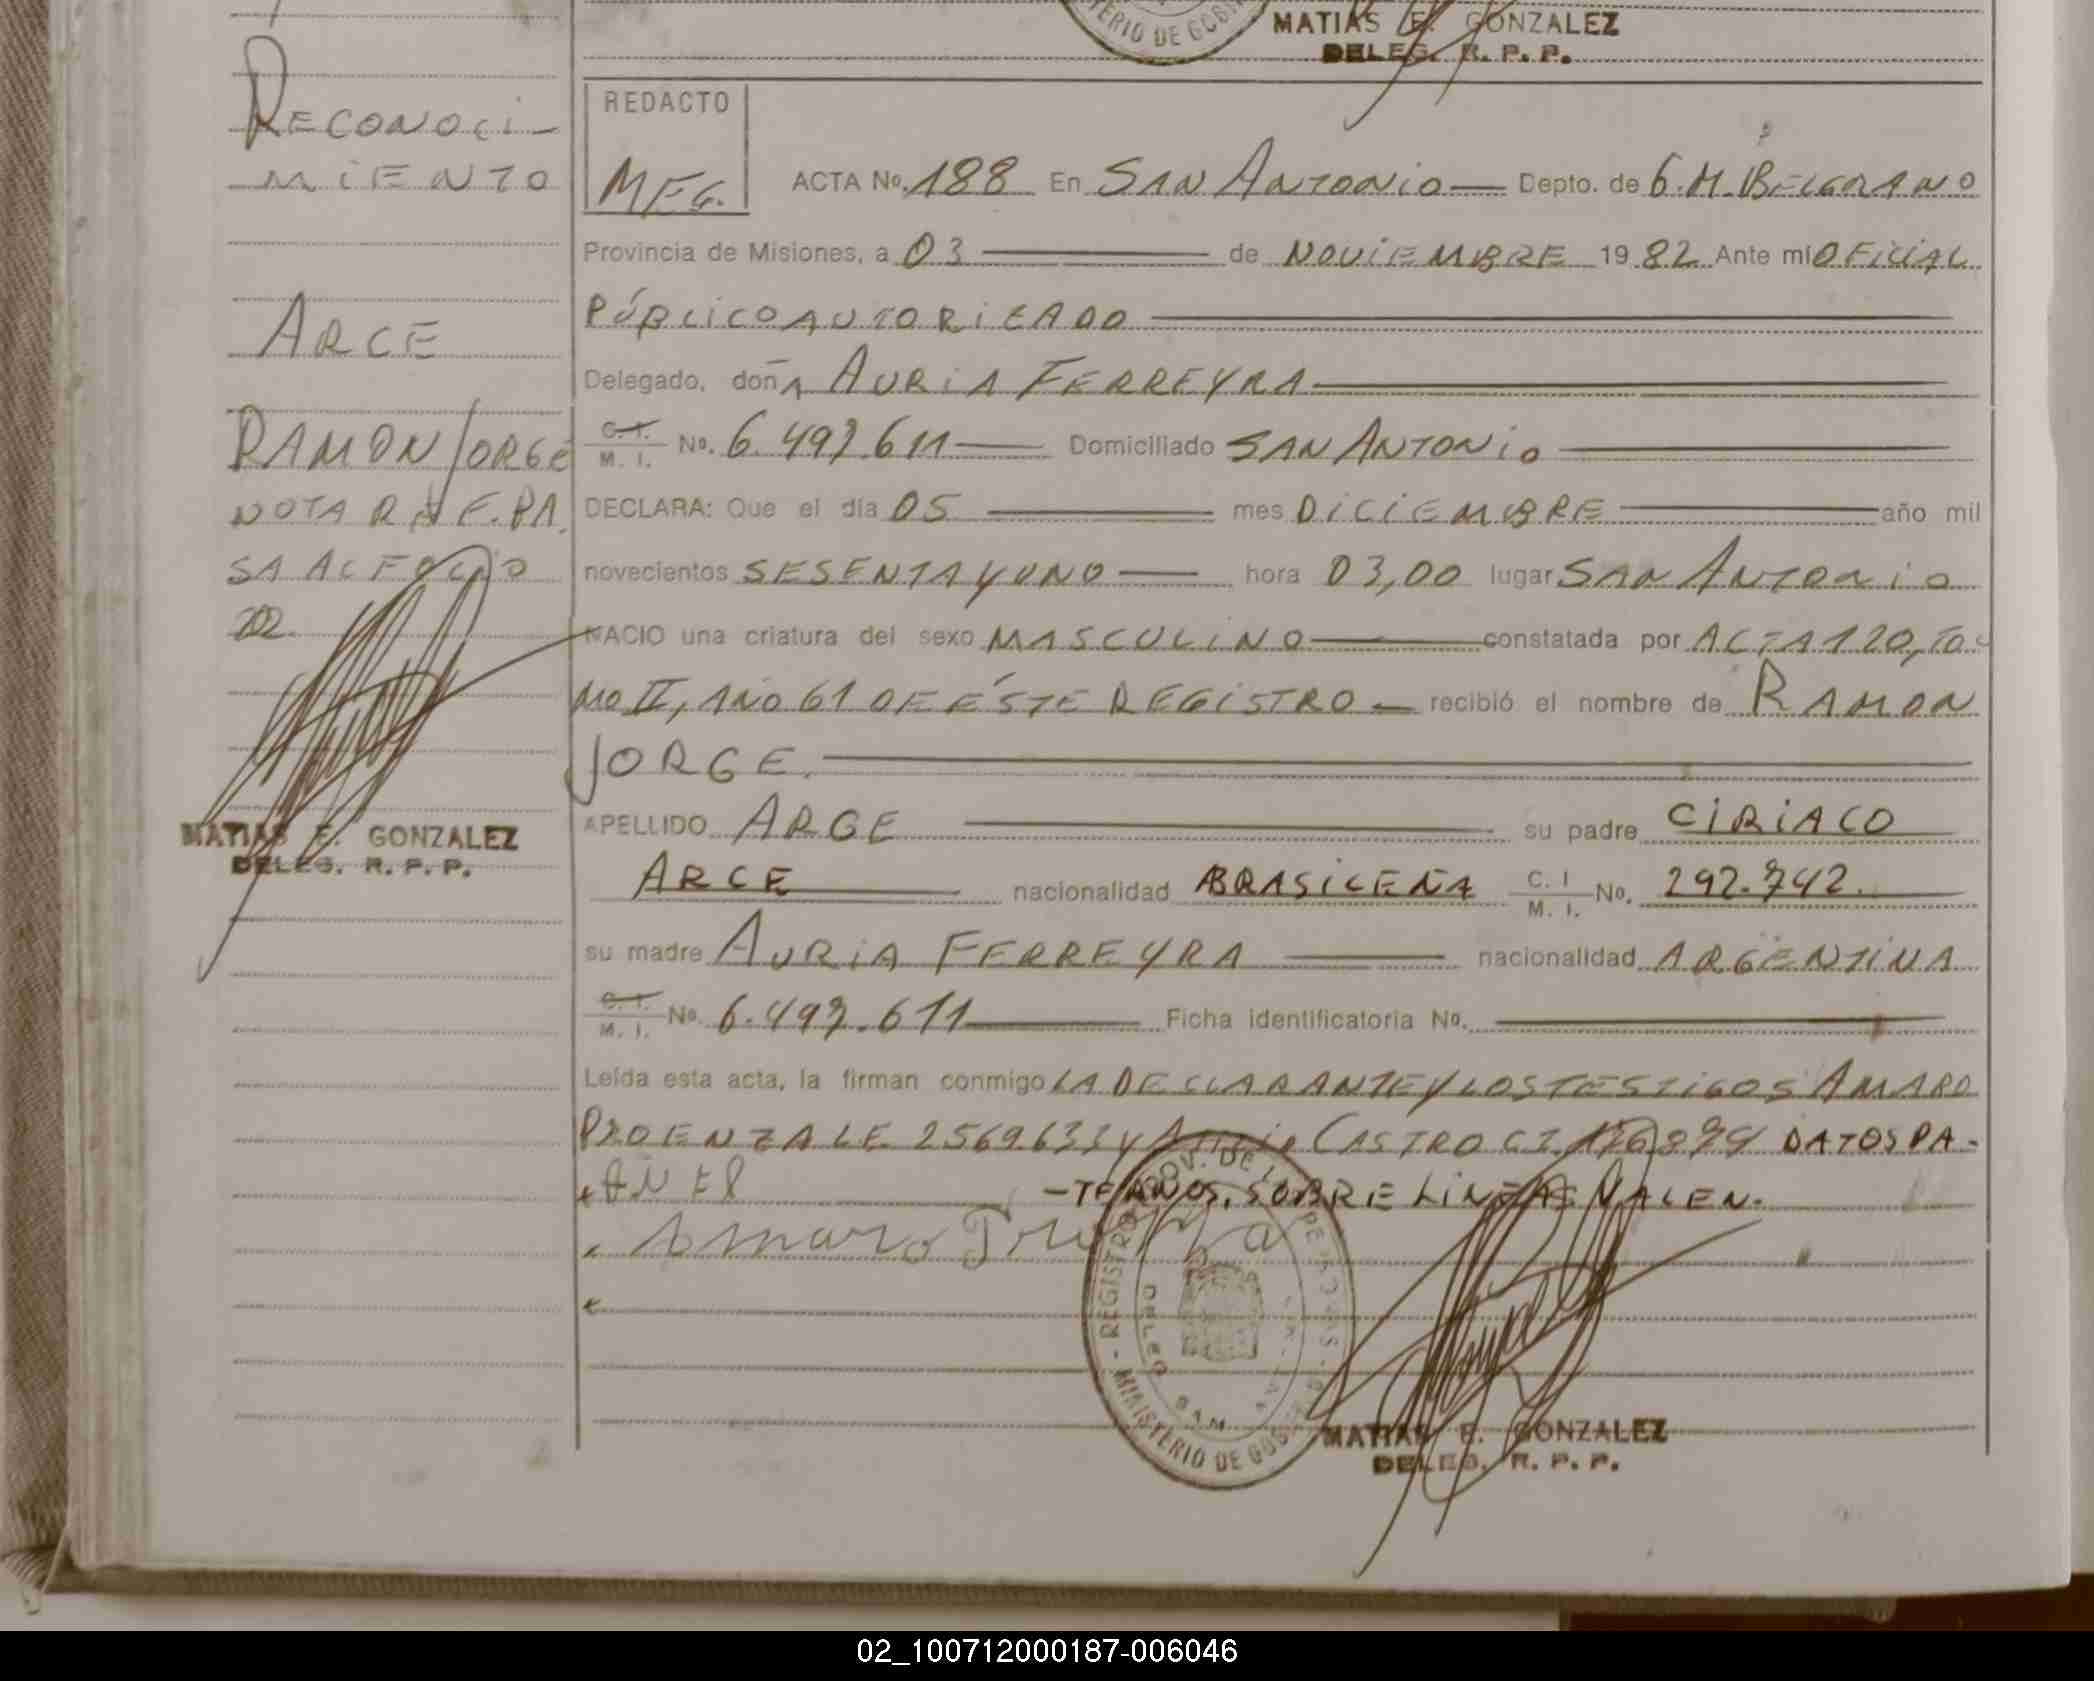 MATIAS E. GONZALEZ
DELEG. R. P. P.
RECONOCI-
MIENTO
ARCE
RAMON JORGE
NOTA REF. PA.
SA AL FOLIO
202.
MATIAS E. GONZALEZ
DELEG. R. P. P.
REDACTO
MEG.
ACTA No. 188 En SAN ANTONIO Depto. de G.M. BELGRANO
Provincia de Misiones, a 03 de NOVIEMBRE 1982 Ante mi OFICIAL
PÚBLICO AUTORIZADO
Delegado, doña AURIA FERREYRA
C. I. M. I. No. 6.497.611 Domiciliado SAN ANTONIO
DECLARA: Que el día 05 mes DICIEMBRE año mil
novecientos SESENTA Y UNO hora 03,00 lugar SAN ANTONIO
NACIO una criatura del sexo MASCULINO constatada por ACTA 120, TO-
MO II, AÑO 61 DE ÉSTE REGISTRO recibió el nombre de RAMON
JORGE.
APELLIDO ARCE su padre CIRIACO
ARCE nacionalidad BRASILEÑA C. I M. I. No. 292.742.
su madre AURIA FERREYRA nacionalidad ARGENTINA
C. I. M. I. No. 6.497.611 Ficha identificatoria No.
Leída esta acta, la firman conmigo LA DECLARANTE Y LOS TESTIGOS AMARO
PROENZA LE 2569633 y CASTRO CI DATOS PA-
-TERNOS, SOBRE LINEAS VALEN.
Amaro
REGISTRO PROV. DE LAS PERSONAS
MINISTERIO DE GOB
MATIAS E. GONZALEZ
DELEG. R. P. P.
02_100712000187-006046